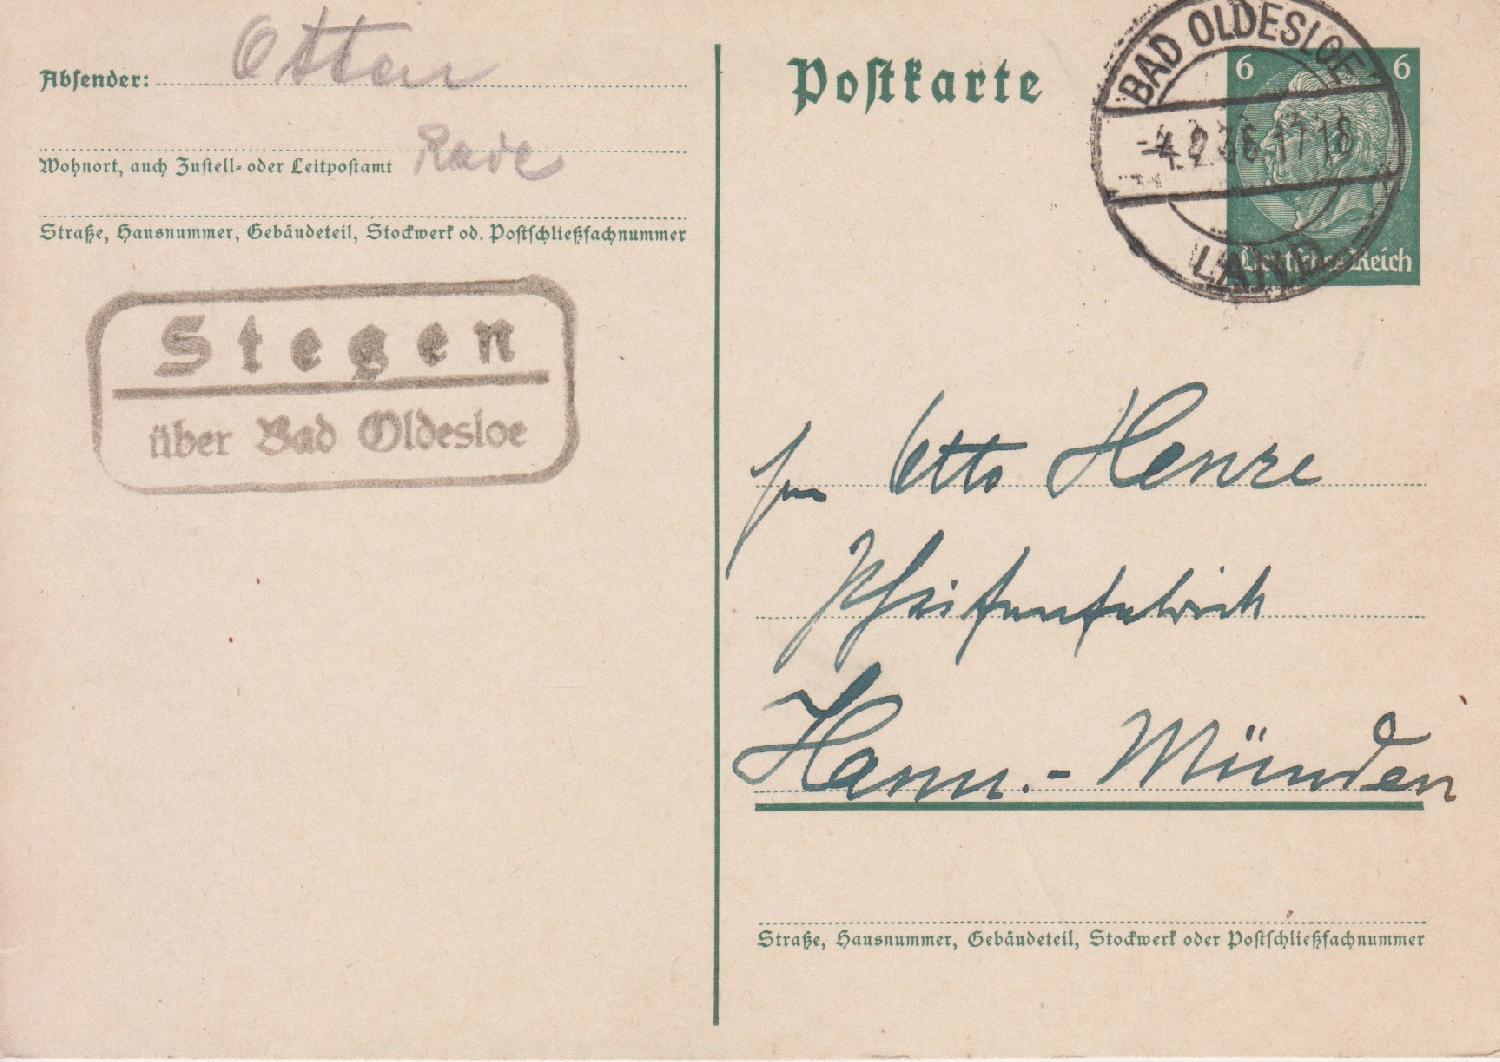 Absender: Otten
Rade
Wohnort, auch Zustell- oder Leitpostamt
Straße, Hausnummer, Gebäudeteil, Stockwerk od. Postschließfachnummer
Stegen
über Bad Oldesloe
Postkarte
6 6
Deutsches Reich
BAD OLDESLOE
-4.2.36.17-18
LAND
Otto Henze
Pfeifenfabrik
Hann.-Münden
Straße, Hausnummer, Gebäudeteil, Stockwerk oder Postschließfachnummer